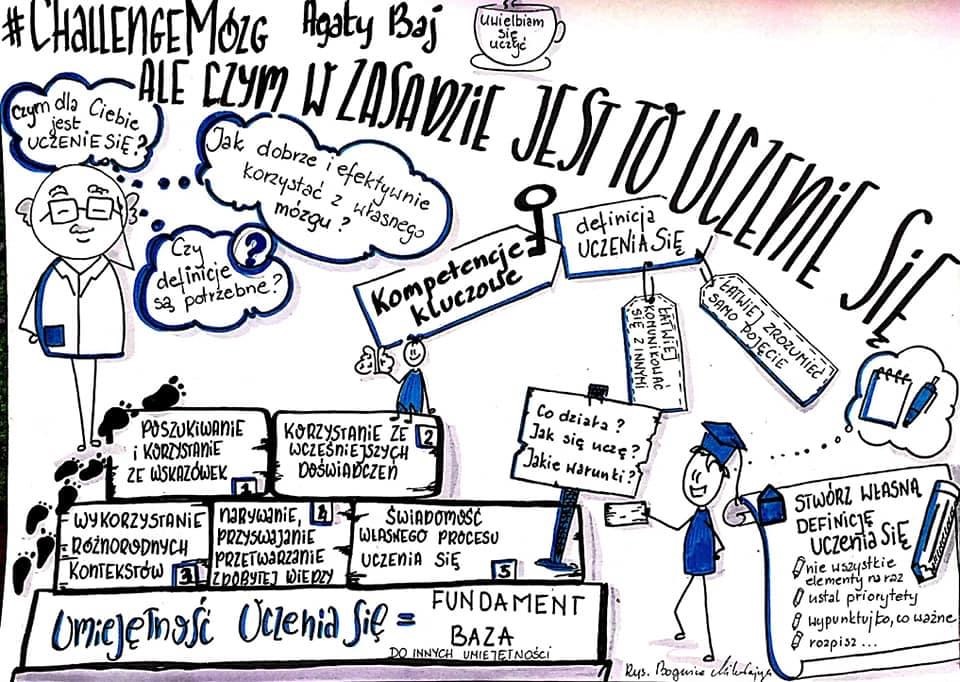 #CHALLENGEMÓZG Agaty Baj
Uwielbiam
się
uczyć
ALE CZYM W ZASADZIE JEST TO UCZENIE SIĘ
Czym dla Ciebie
jest
UCZENIE SIĘ?
Jak dobrze i efektywnie
korzystać z własnego
mózgu?
Czy
definicje
są potrzebne?
?
Kompetencje
kluczowe
definicja
UCZENIA SIĘ
ŁATWIEJ
KOMUNIKOWAĆ
SIĘ Z INNYMI
ŁATWIEJ ZROZUMIEĆ
SAMO POJĘCIE
POSZUKIWANIE
i KORZYSTANIE
ZE WSKAZÓWEK
1
KORZYSTANIE ZE
WCZEŚNIEJSZYCH
DOŚWIADCZEŃ
2
WYKORZYSTANIE
RÓŻNORODNYCH
KONTEKSTÓW
3
NABYWANIE,
PRZYSWAJANIE
PRZETWARZANIE
ZDOBYTEJ WIEDZY
4
ŚWIADOMOŚĆ
WŁASNEGO PROCESU
UCZENIA SIĘ
5
Co działa?
Jak się uczę?
Jakie warunki?
UMIEJĘTNOŚĆ UCZENIA SIĘ =
FUNDAMENT
BAZA
DO INNYCH UMIEJĘTNOŚCI
STWÓRZ WŁASNĄ
DEFINICJĘ
UCZENIA SIĘ
nie wszystkie
elementy na raz
ustal priorytety
wypunktuj to, co ważne
rozpisz...
Rys.